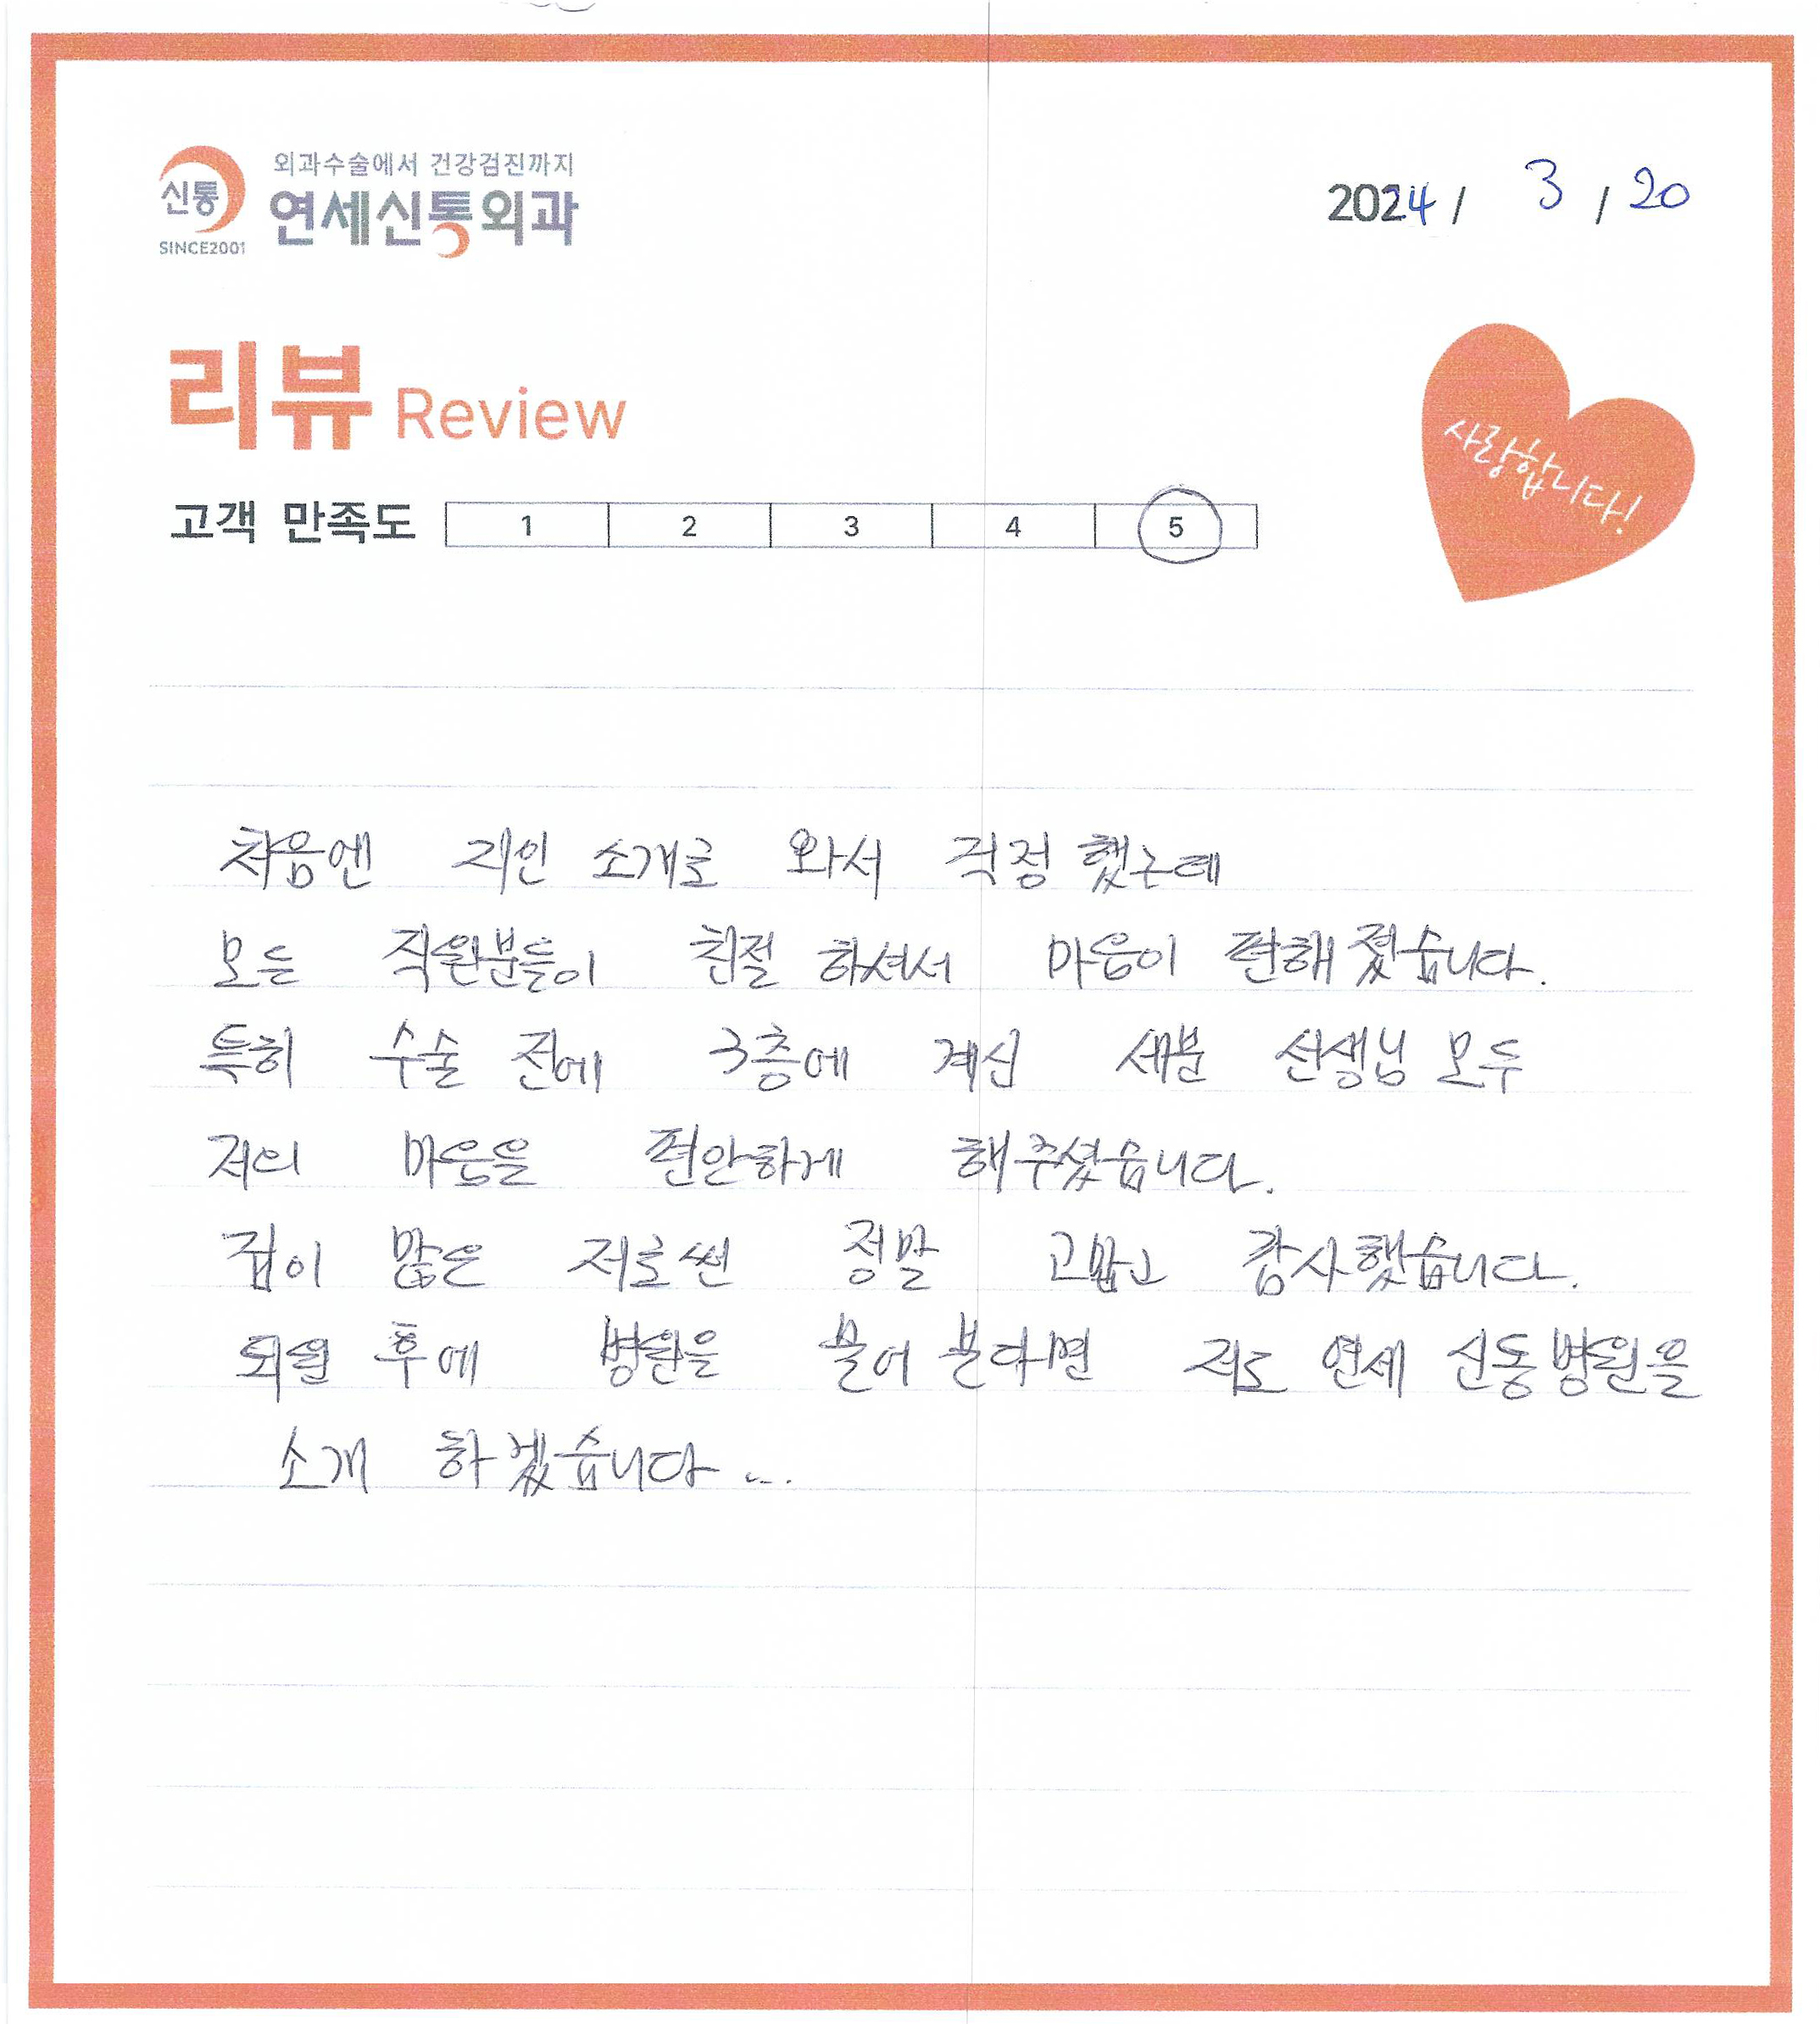 신통
SINCE2001
외과수술에서 건강검진까지
연세신통외과
2024 / 3 / 20
리뷰 Review
사랑합니다!
고객 만족도 1 2 3 4 5
처음엔 지인 소개로 와서 걱정 했는데
모든 직원분들이 친절 하셔서 마음이 편해 졌습니다.
특히 수술 전에 3층에 계신 세분 선생님 모두
저의 마음을 편안하게 해주셨습니다.
겁이 많은 저로썬 정말 고맙고 감사했습니다.
퇴원 후에 병원을 물어 본다면 저도 연세 신통병원을
소개 하겠습니다...